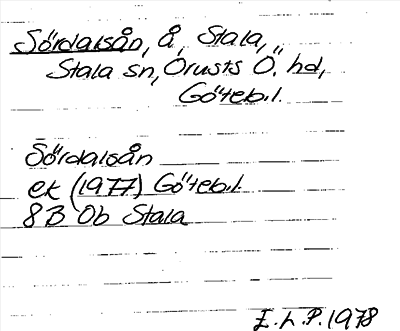 Sördalsån, å, Stala,
Stala sn, Orusts Ö. hd,
Göteb.l.
Sördalsån
ek (1977) Göteb.l.
8B 0b Stala
E.L.P. 1978